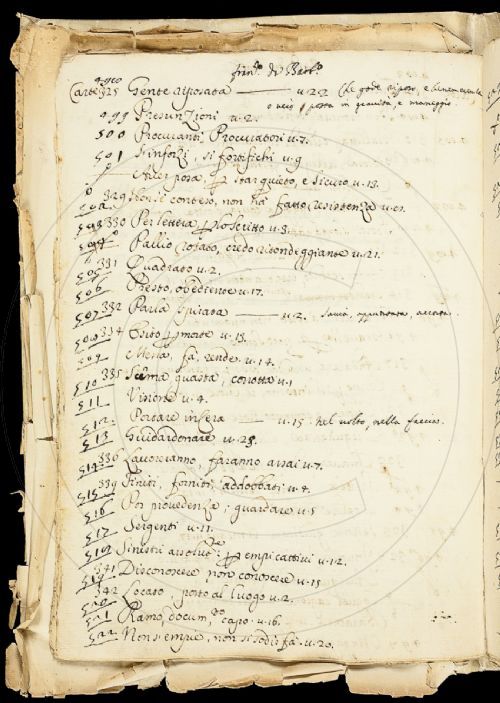 Carte 325 Gente riposata — u. 22 che gode riposo, e
o ueio posta in grauita, e maneggio
499 Presunzioni u. 2.
500 Procuranti, Procuratori u. 7.
501 S'inforzi, si fortifichi u. 9
posa, star quieto, e sicuro u. 13.
329 conteso, non ha fatto resistenza u.
503 330 Per lettera, Scritto u. 3.
504 Pallio rosato, credo riondeggiante u. 21.
505 331 Quadrato u. 2.
506 Presto, obediente u. 17.
507 332 Parla spirata — u. 2. sauia,
508 334 Esito morte u. 13.
509 Mena, fa, rende u. 14.
510 335 Scema guasta, corrotta u. 1
511 Visione u. 4.
512 Portare in sera — u. 15 nel uolto, nella faccia.
513 Guidardonare u. 25.
514 336 Lauoreranno, faranno assai u. 7.
515 339 Finiti, forniti, addobbati u. 4.
516 Por prouedenza, guardare u. 5
517 Sergenti u. 11.
518 Sinistri empi cattiui u. 12.
519 341 Disconoscere, non conoscere u. 15
520 342 Locato, posto al luogo u. 2.
521 Ramo, docum.to, capo u. 16.
522 Non s'empie, non si sodisfà u. 20.